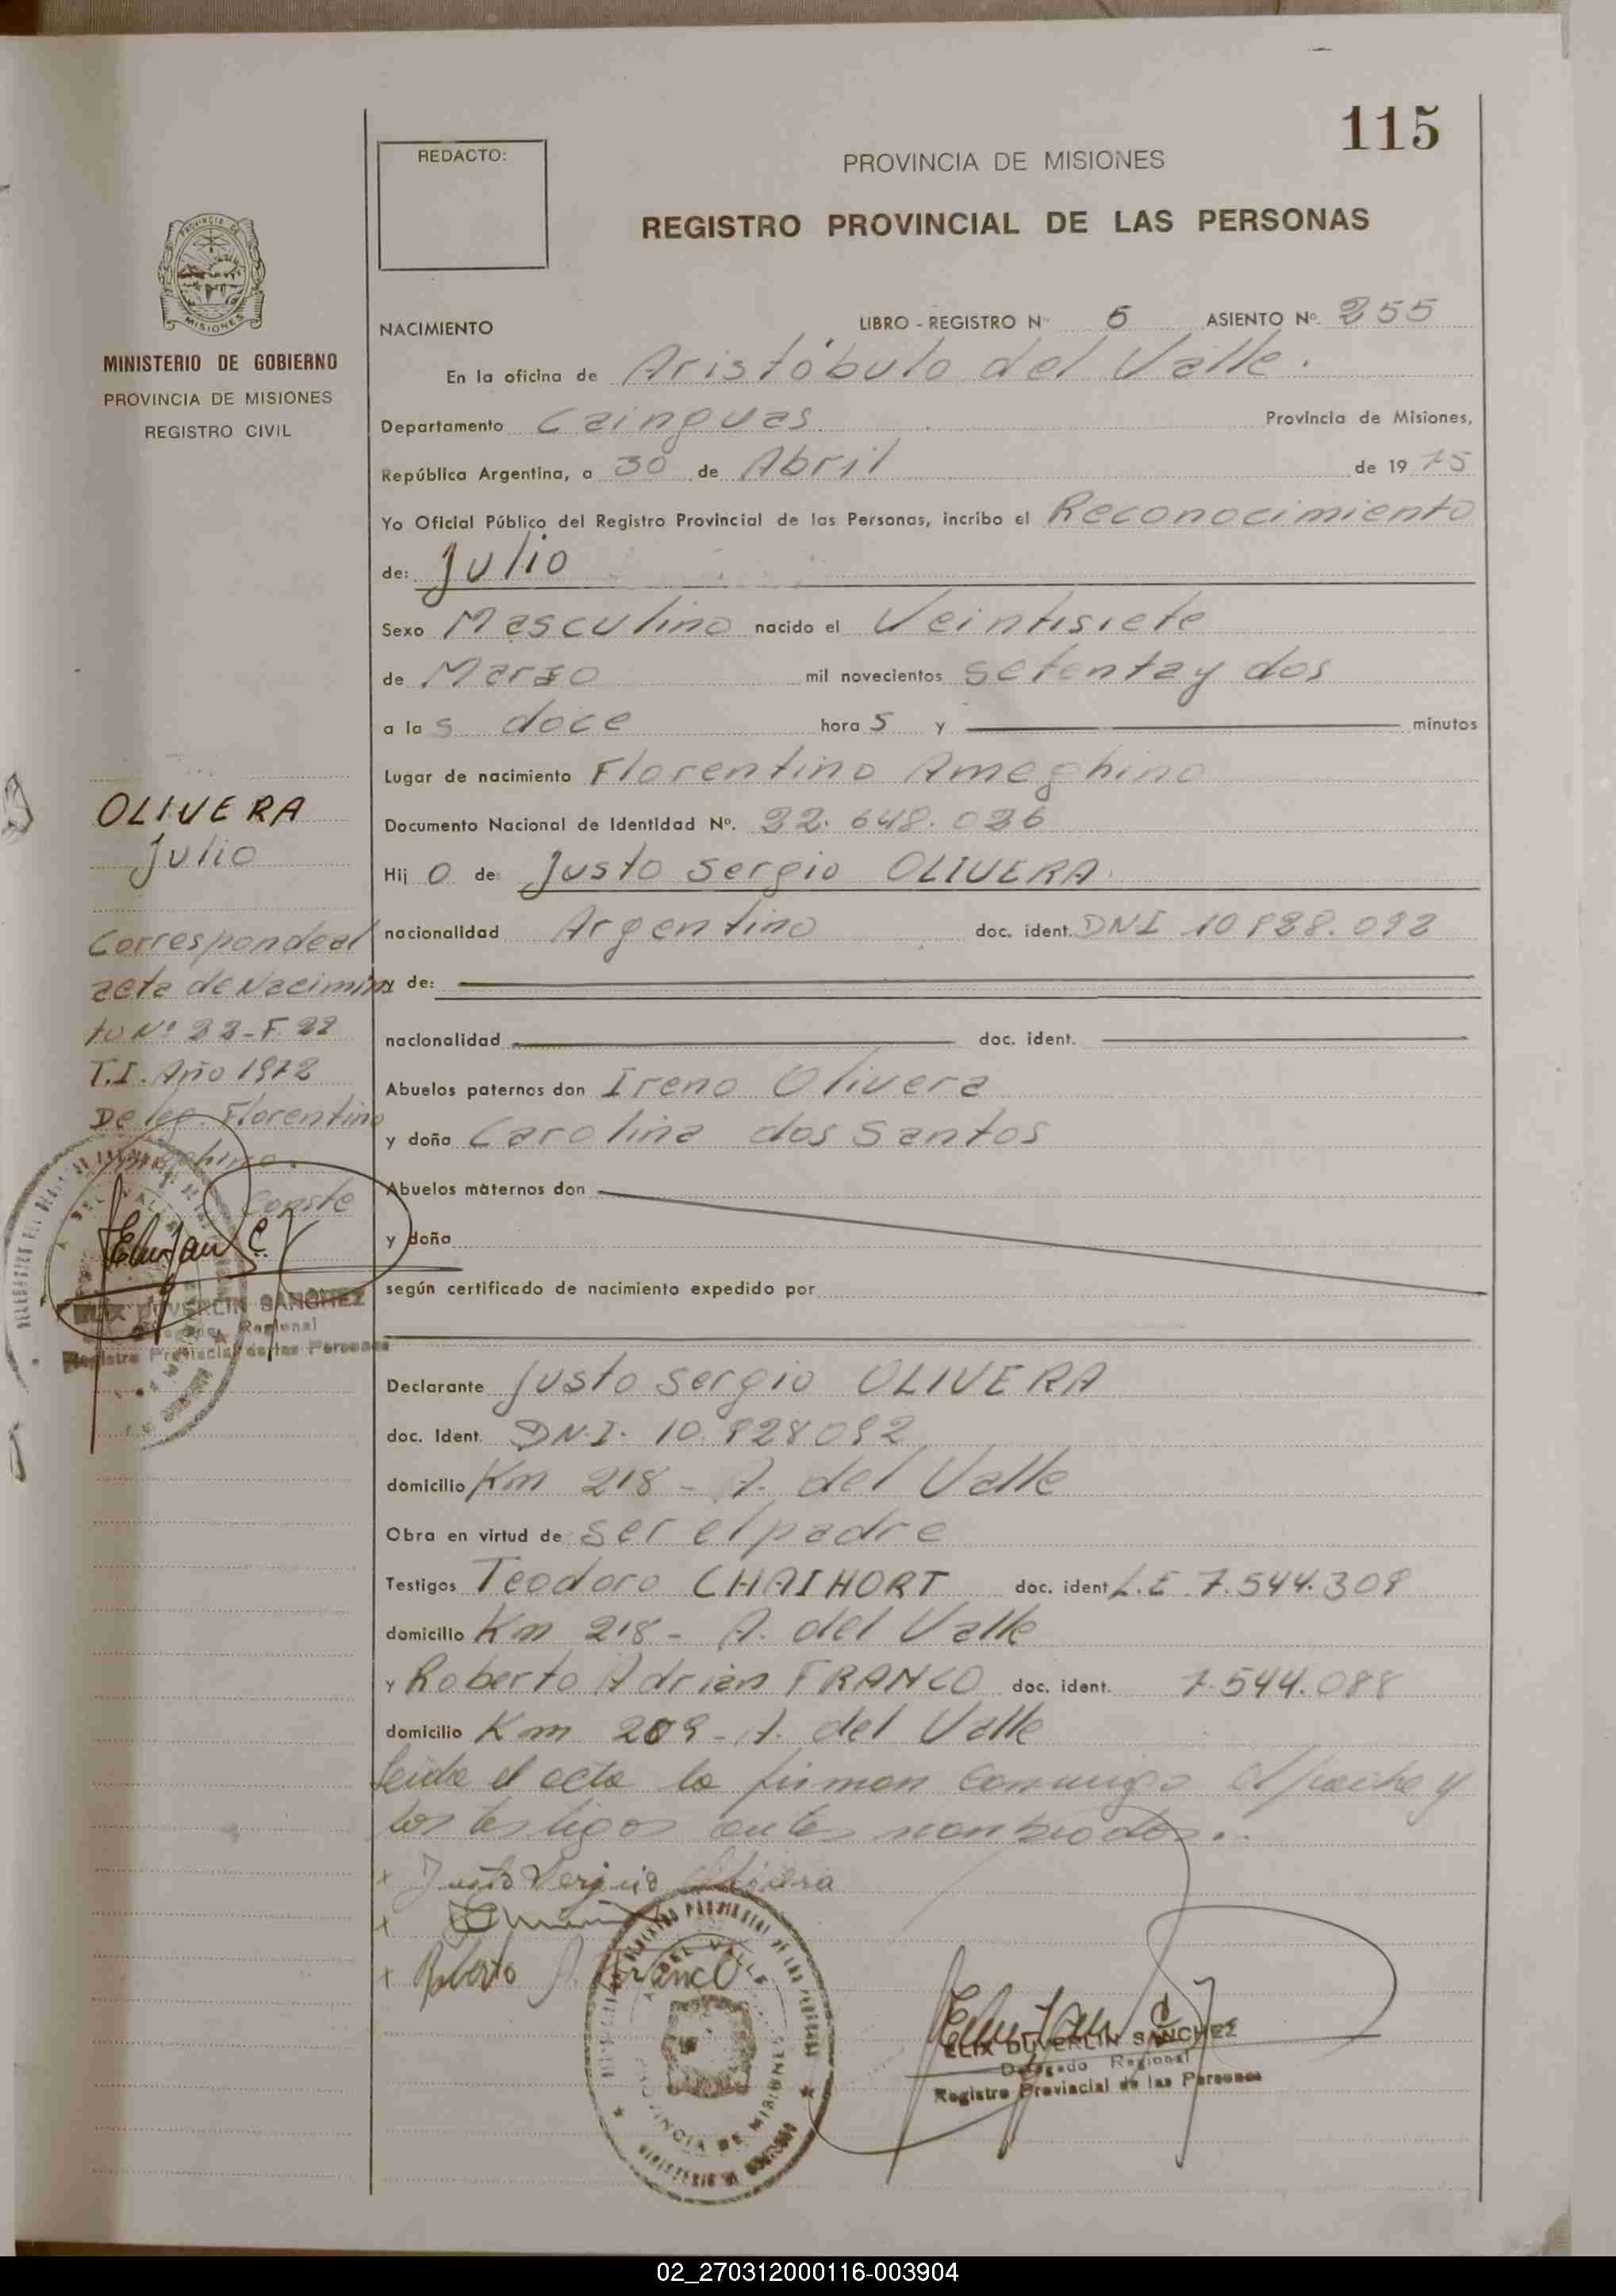 115
REDACTO:
PROVINCIA DE MISIONES
REGISTRO PROVINCIAL DE LAS PERSONAS
MISIONES
MINISTERIO DE GOBIERNO
PROVINCIA DE MISIONES
REGISTRO CIVIL
NACIMIENTO LIBRO - REGISTRO Nº 6 ASIENTO Nº. 255
En la oficina de Aristóbulo del Valle.
Departamento Cainguas Provincia de Misiones,
República Argentina, a 30 de Abril de 19 75
Yo Oficial Público del Registro Provincial de las Personas, incribo el Reconocimiento
de: Julio
Sexo Masculino nacido el Veintisiete
de Marzo mil novecientos setenta y dos
a las doce horas y minutos
Lugar de nacimiento Florentino Ameghino
Documento Nacional de Identidad Nº. 22.648.026
Hijo de Justo Sergio OLIVERA
nacionalidad Argentino doc. ident. DNI 10828.092
y de:
nacionalidad doc. ident.
Abuelos paternos don Ireno Olivera
y doña Carolina dos Santos
Abuelos maternos don
y doña
según certificado de nacimiento expedido por
OLIVERA
Julio
Corresponde al
acta de Nacimien
to Nº 22-F. 22
T.I. Año 1972
Deleg. Florentino
Ameghino.
Conste
ELIX DUVERLIN SANCHEZ
Delegado Regional
Registro Provincial de las Personas
Declarante Justo Sergio OLIVERA
doc. Ident. D.N.I. 10.828092
domicilio Km 218 - A. del Valle
Obra en virtud de ser el padre
Testigos Teodoro CHAIHORT doc. ident L.E 7.544.308
domicilio Km 218 - A. del Valle
y Roberto Adrian FRANCO doc. ident. 7.544.088
domicilio Km 209 - A. del Valle
Leida el acta la firman conmigo el padre y
los testigos antes nombrados..
x Justo Sergio Olivera
x
x Roberto A. Franco
ELIX DUVERLIN SANCHEZ
Delegado Regional
Registro Provincial de las Personas
02_270312000116-003904